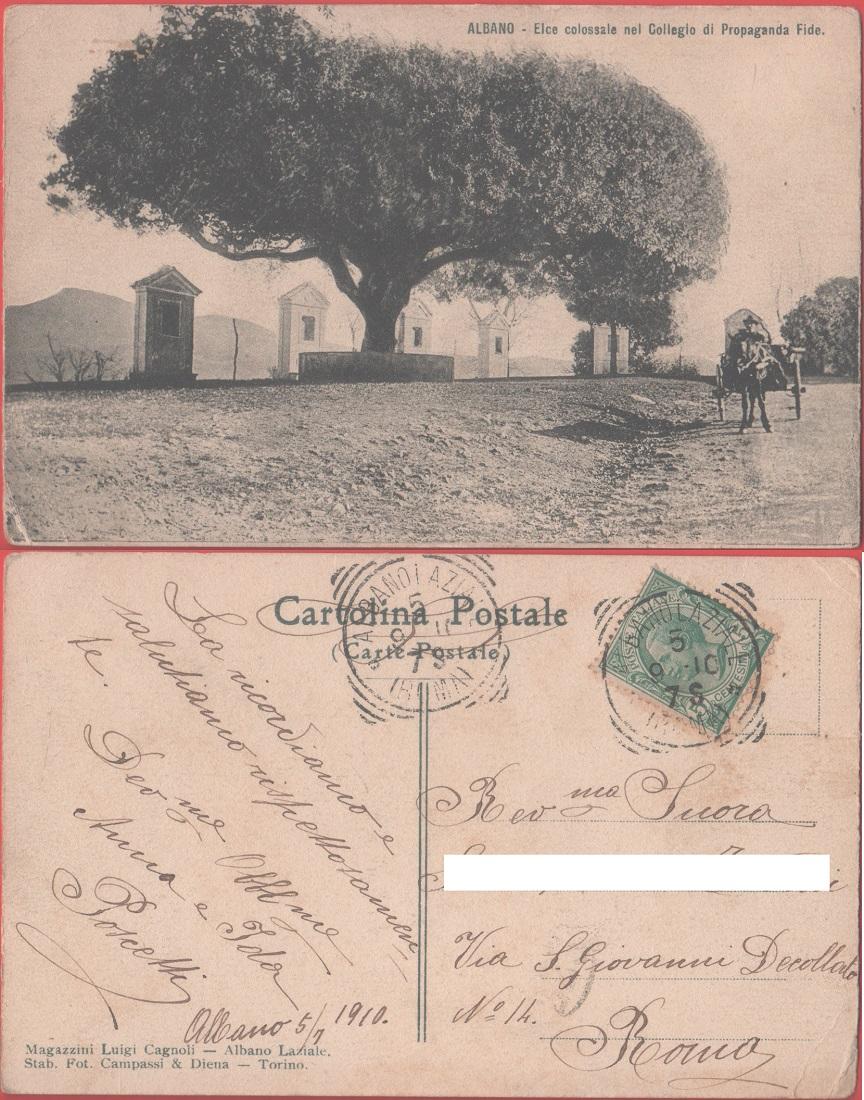 ALBANO - Elce colossale nel Collegio di Propaganda Fide.
Cartolina Postale
(Carte Postale)
ALBANO LAZIALE
5
7
(ROMA)
ALBANO LAZIALE
5
7
10
(ROMA)
La ricordiamo e
salutiamo rispettosamen-
te.
Devme Obblme
Anna e Ida
Albano 5/7 1910.
Revma Suora
Via S. Giovanni Decollato
No 14.
Roma
Magazzini Luigi Cagnoli — Albano Laziale.
Stab. Fot. Campassi & Diena — Torino.